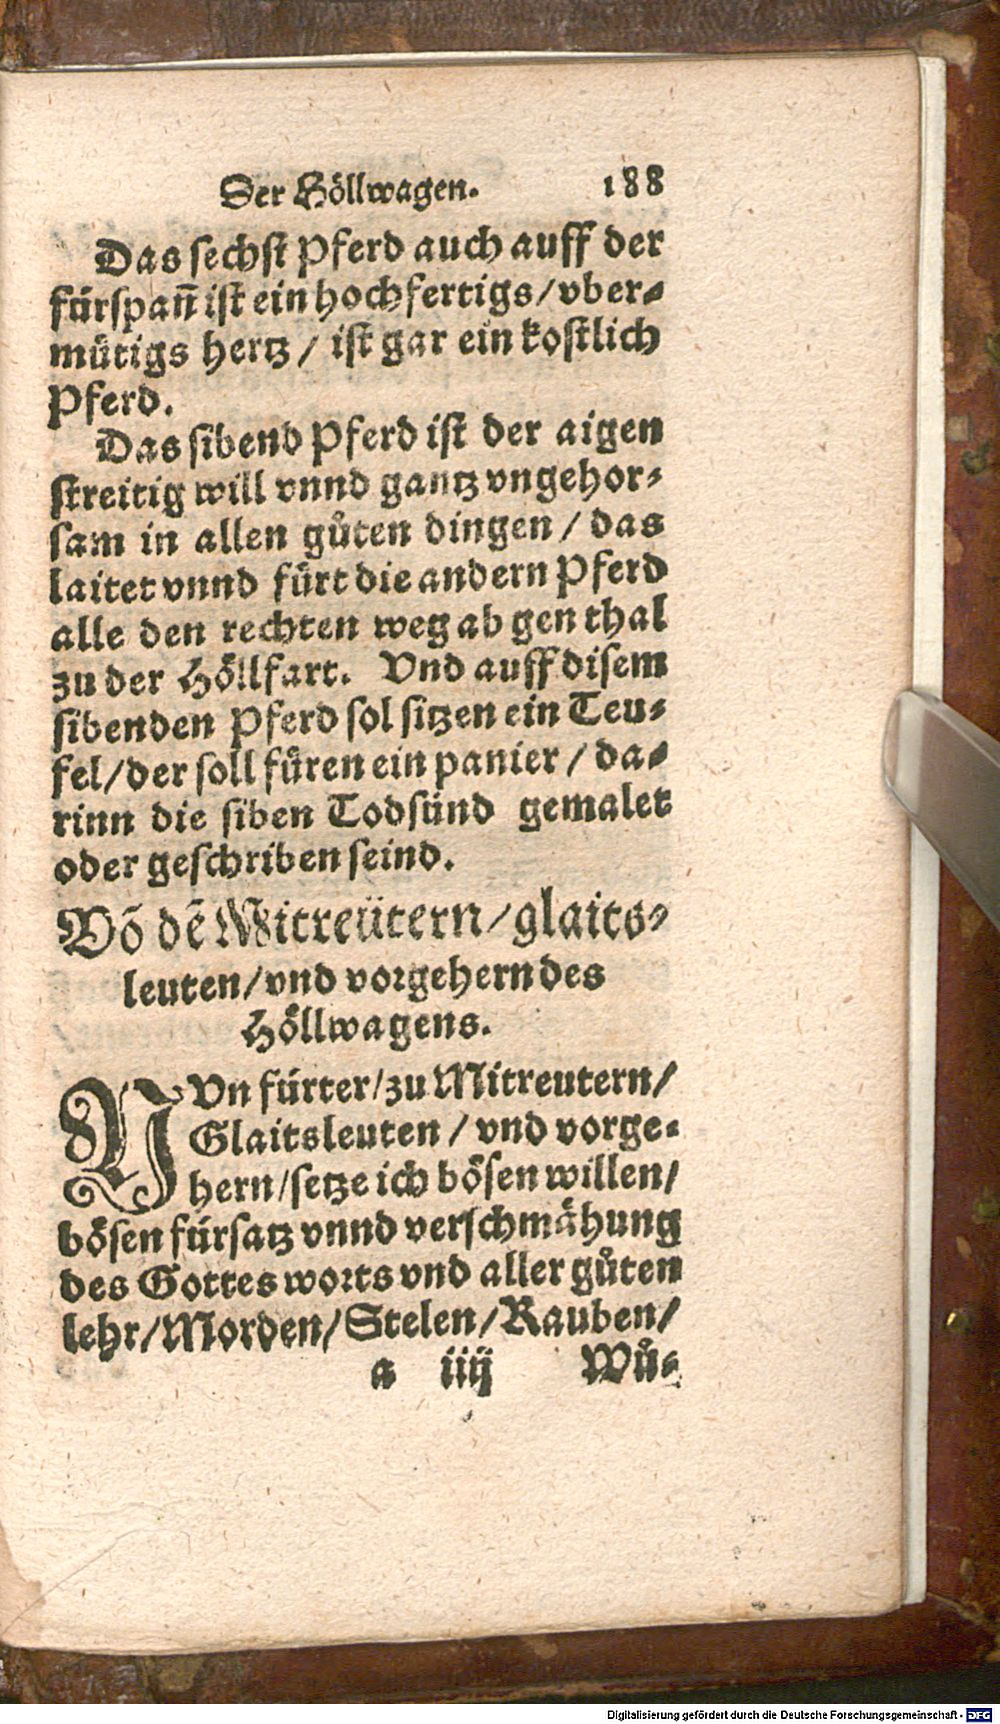 Der Höllwagen. 188
Das sechst Pferd auch auff der
fürspañ ist ein hochfertigs/vber-
mütigs hertz/ ist gar ein kostlich
Pferd.
Das sibend Pferd ist der aigen
streitig will vnnd gantz vngehor-
sam in allen gůten dingen/ das
laitet vnnd fürt die andern Pferd
alle den rechten weg ab gen thal
zu der Höllfart. Vnd auff disem
sibenden Pferd sol sitzen ein Teu-
fel/der soll füren ein panier/ da-
rinn die siben Todsünd gemalet
oder geschriben seind.
Võ dẽ Mitreütern/glaits-
leuten/vnd vorgehern des
Höllwagens.
NVn fürter/zu Mitreutern/
Glaitsleuten/ vnd vorge-
hern/setze ich bösen willen/
bösen fürsatz vnnd verschmähung
des Gottes worts vnd aller gůten
lehr/Morden/Stelen/Rauben/
a iiij Wů-
Digitalisierung gefördert durch die Deutsche Forschungsgemeinschaft - DFG